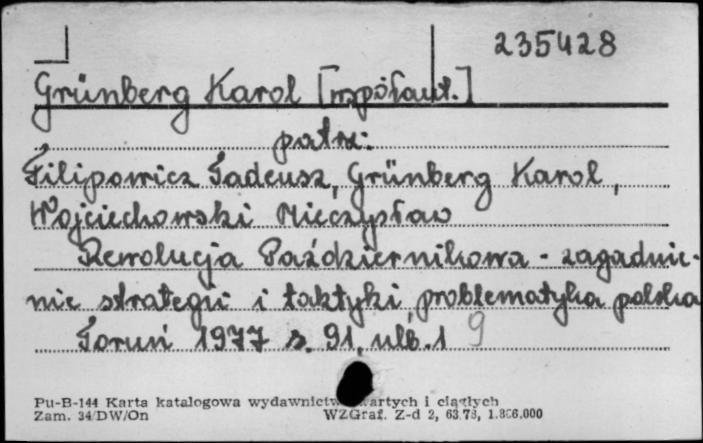 235428
Grünberg Karol [współaut.]
patrz:
Filipowicz Tadeusz, Grünberg Karol,
Wojciechowski Mieczysław
Rewolucja Październikowa - zagadnie-
nie strategii i taktyki, problematyka polska
Toruń 1977 s. 91, nlb. 1 9
Pu-B-144 Karta katalogowa wydawnictw zwartych i ciągłych
Zam. 34/DW/On WZGraf. Z-d 2, 63.78, 1.866.000